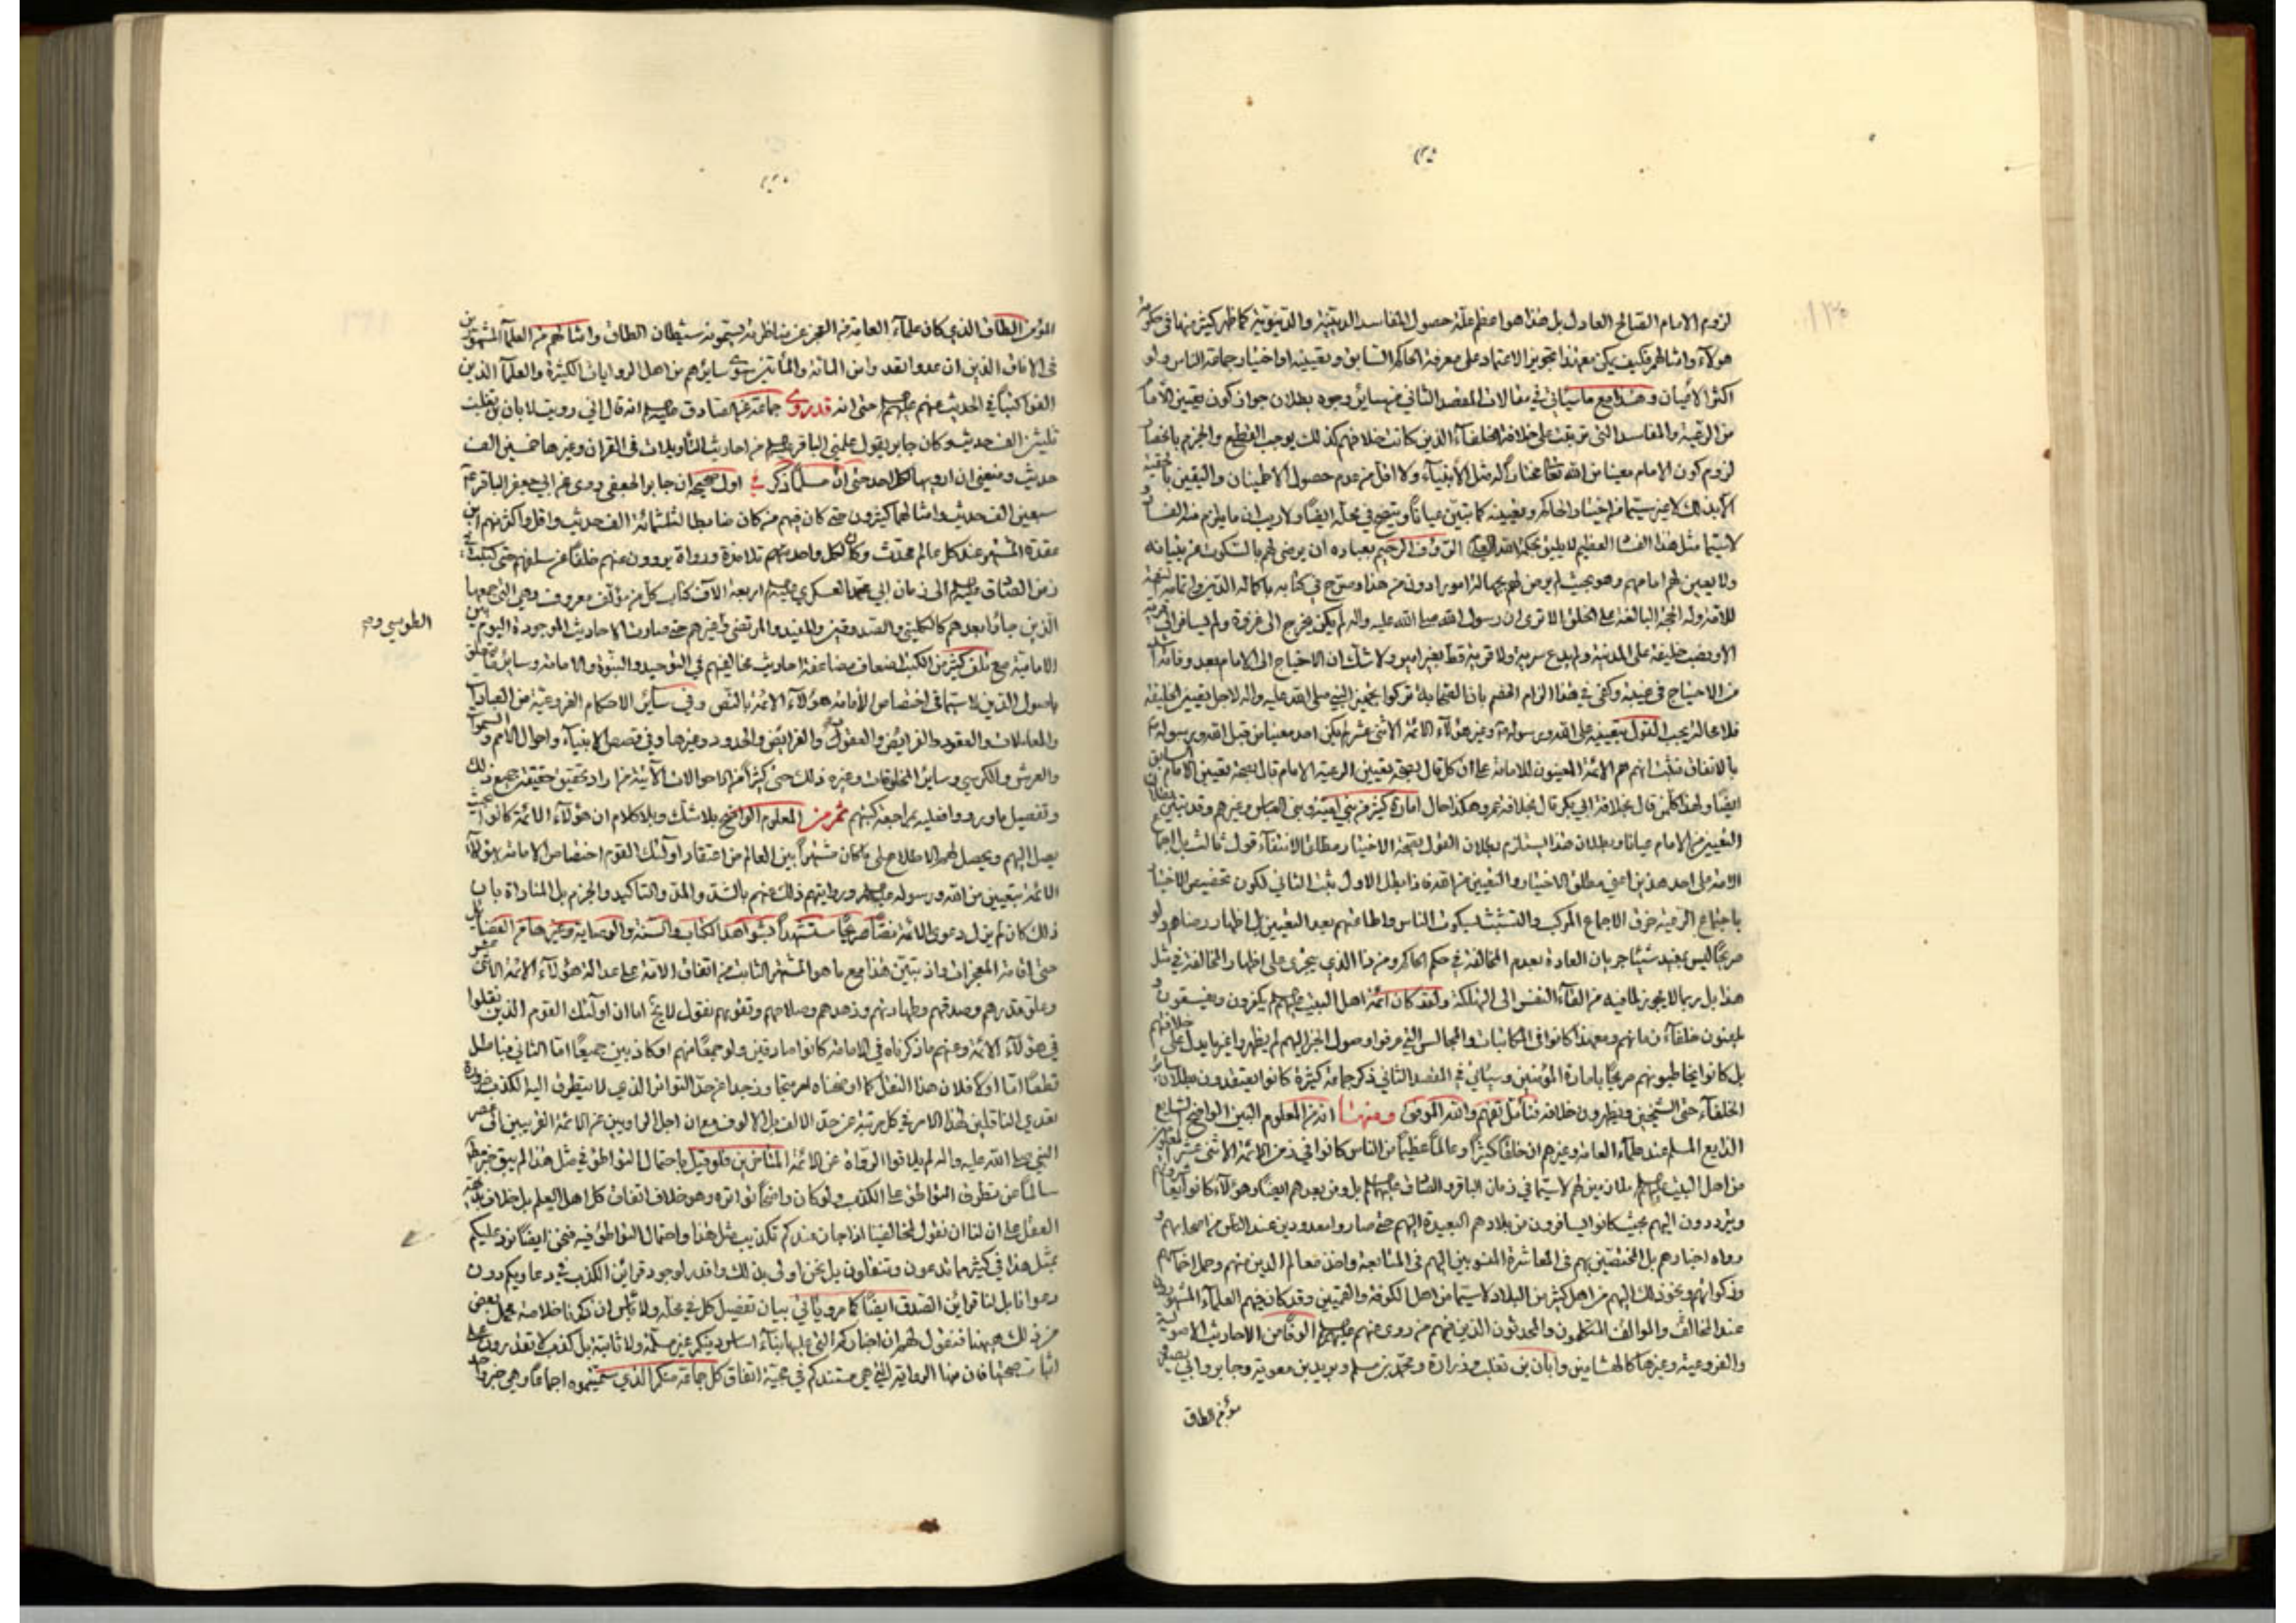 لزوم الامام الصالح العادل بل هذا هو اعظم علة حصول المفاسد الدينية والدنيوية كما ظهر كثير منها في
هولآء وامثالهم فكيف يمكن معهذا تجويز الاعتماد على معرفة الحاكم السابق وتعيينه او اختيار جماعة الناس ولو
اكثر الاعيان وهذا مع ما سيأتي في مقالات المقصد الثاني من ساير وجوه بطلان جواز كون تعيين
من الرعية والمفاسد التي ترتبت على خلافة الخلفآء الذين كانت خلافتهم كذلك يوجب القطع والجزم
لزوم كون الامام معينا من الله تعا مختارا له مثل الأنبيآء ولا اقل من عدم حصول الاطمينان واليقين
الا بذلك لا غير سيما في اختيار الحاكم وتعيينه كما تبين عيانا ويتضح في محله ايضا ولا ريب ان ما يلزم منه
لا سيما مثل هذا العظيم لا يليق بحكمة الله الرؤف الرحيم بعباده ان يرضى لهم بالسكوت عن
ولا يعين لهم امامهم وهو بحيث لم يرض لهم بجهالة امور ادون من هذا وصرح في كتابه باكماله الدين
للامة وله الحجة البالغة على الخلق الا ترى ان رسول الله صلى الله عليه واله لم يكن يخرج الى غزوة ولم يسافر الى
الا ونصب خليفة على المدينة ولم يدع سرية ولا قرية قط بغير امير ولا شك ان الاحتياج الى الامام بعد وفاته
من الاحتياج في غيبته وكفى في هذا الزام الخصم بان الصحابة تركوا تجهيز النبي صلى الله عليه واله لاجل تعيين الخليفة
فلا محالة يجب القول بتعيينه على الله ورسوله وغير هؤلآء الائمة الاثنى عشر لم يكن احد معينا من قبل الله ورسوله
بالاتفاق فثبت انهم هم الائمة المعينون للامامة على ان كل قال بصحة تعيين الرعية الامام قال بصحة تعيين الامام السابق
ايضا ولهذا كل من قال بخلافة ابي بكر قال بخلافة عمر وهكذا حال امارة كثير من بني امية وبني العباس وغيرهم وقد تبين
التعيين من الامام عيانا وبطلان هذا يستلزم بطلان القول بصحة الاختيار مطلقا لانتفآء قول ثالث بل
الامة على احد هذين اعني مطلق الاختيار والتعيين من الله فاذا بطل الاول ثبت الثاني لكون
باجتماع الرعية خرق الاجماع المركب والتشبث بسكوت الناس واطاعتهم بعد التعيين بل اظهار رضاهم ولو
صريحا ليس بمفيد شيئا جريان العادة بعدم المخالفة في حكم الحاكم ومن ذا الذي يجرى على اظهار المخالفة في مثل
هذا بل ربما لا يجوز لما فيه من القآء النفس الى التهلكة ولقد كان ائمة اهل البيت عليهم
يلعنون خلفآء زمانهم ومعهذا كانوا في المكاتبات والمجالس التي عرفوا وصول الخبر اليهم لم يظهروا غير ما يدل على خلافتهم
بل كانوا يخاطبونهم صريحا بامارة المؤمنين وسيأتي في المقصد الثاني ذكر جماعة كثيرة كانوا يعتقدون بطلان
الخلفآء حتى الشيخين ويظهرون خلافه فتأمل تفهم والله الموفق ومنها انه من المعلوم البين الواضح الشايع
الذايع المسلم عند علمآء العامة وغيرهم ان خلقا كثيرا وعالما عظيما من الناس كانوا في زمن الائمة الاثنى عشر
من اهل البيت عليهم ملازمين لهم لا سيما في زمان الباقر والصادق عليهما بل ومن بعدهم ايضا وهؤلآء كانوا
ويترددون اليهم بحيث كانوا يسافرون من بلادهم البعيدة اليهم حتى صاروا معدودين عند الناس من اصحابهم و
رواه اخبارهم بل المختصين بهم في المعاشرة المنسوبين اليهم في المتابعة واخذ معالم الدين منهم وحمل
وزكواتهم ونحو ذلك اليهم من اهل كثير من البلاد لا سيما من اهل الكوفة والقميين وقد كان فيهم العلمآء المشهورون
عند المخالف والموالف المتكلمون والمحدثون الذين فيهم من روى عنهم عليهم الوفا من الاحاديث الاصولية
والفروعية وغيرها كالهشامين وابان بن تغلب وزرارة ومحمد بن مسلم وبريد بن معوية وجابر وابي بصير
مؤمن الطاق
المؤمن الطاق الذي كان علمآء العامة من العجز عن مناظرته يسمونه شيطان الطاق وامثالهم من العلمآء المشهورين
في الافاق الذين ان عدوا لقد المائة والمأتين سوى سايرهم من اهل الروايات الكثيرة والعلمآء الذين
الفوا كتبا في الحديث عنهم عليهم حتى انه قد روى جماعة عن الصادق عليه انه قال اني رويت لابان بن تغلب
ثلثين الف حديث وكان جابر يقول علمني الباقر من احاديث التأويلات في القران وغيرها خمسين الف
حديث ومنعني ان ارويها لكل احد حتى ان مسلما ذكر في اول صحيحه ان جابر الجعفي روى عن ابي جعفر الباقر
سبعين الف حديث وامثالهما كثيرون حتى كان فيهم من كان ضابطا لثلثمائة الف حديث واقل واكثر منهم ابن
عقدة المشهور عند كل عالم محدث وكان لكل واحد منهم تلامذة ورواة يروون عنهم خلفا عن سلفهم حتى كتبت
زمن الصادق عليه الى زمان ابي محمد العسكري عليه اربعة الاف كتاب كل من مؤلف معروف وهي التي جمعها
الذين جاؤا بعدهم كالكليني والصدوقين والمفيد والمرتضى وغيرهم حتى صارت الاحاديث الموجودة اليوم بين
الطوسي
الامامية مع تلف كثير من الكتب اضعاف مضاعفة احاديث مخالفيهم في التوحيد والنبوة والامامة وساير ما يتعلق
باصول الدين لا سيما في اختصاص الامامة بهؤلآء الائمة بالنص وفي ساير الاحكام الفروعية من العبادات
والمعاملات والعقود والفرائض والحدود وغيرها وفي قصص الانبيآء واحوال الامم و
والعرش والكرسي وساير المخلوقات وغير ذلك حتى كثيرا من الحالات الآتية من اراد تحقيق حقيقة جميع ذلك
وتفصيل ما ورد وافعليه بمراجعة كتبهم ثم من المعلوم الواضح بلا شك وبلا كلام ان هؤلآء الائمة كانوا بحيث
يصل اليهم ويحصل لهم الاطلاع على ما كان مشهورا بين العالم من اعتقاد اولئك القوم اختصاص الامامة بهؤلآء
الائمة بتعيين من الله ورسوله وروايتهم ذلك عنهم بالشد والمد والتاكيد والجزم بل المناداة بان
ذلك كان لم يزل دعوى الائمة نصا صريحا مستشهدا بشواهد الكتاب والسنة والوصاية وغيرها من الفضايل
حتى اقامة المعجزات واذ تبين هذا مع ما هو المشتهر الثابت من اتفاق الامة على عدالة هؤلآء الائمة
وعلو قدرهم وصدقهم وطهارتهم وزهدهم وصلاحهم وتقويهم نقول لا يخ اما ان اولئك القوم الذين نقلوا
في هؤلآء الائمة وعنهم ما ذكرناه في الامامة كانوا صادقين ولو جمعا منهم او كاذبين جميعا اما الثاني فباطل
قطعا اما اولا فلان هذا النقل كما اوضحناه صريحا متجاوز جدا عن حد التواتر الذي لا يتطرق اليه الكذب ضرورة
تعدي الناقلين لهذا الامر في كل مرتبة عن حد الالف بل الالوف مع ان اجل الراويين عن الائمة القريبين الى عصر
النبي صلى الله عليه واله لم يلاقوا الرواة عن الائمة المتأخرين فلو قيل باحتمال التواطؤ في مثل هذا لم يبق خبر
سالما عن تطرق التواطؤ على الكذب ولو كان واضحا تواتره وهو خلاف اتفاق كل اهل العلم بل خلاف
العقل على ان لنا ان نقول لمخالفينا اذا جاز عندكم تكذيب مثل هذا واحتمال التواطؤ فيه فنحن ايضا نرد عليكم
بمثل هذا في كثير مما تدعون وتنقلون بل نحن اولى بذلك واقدر لوجود قراين الكذب في دعاويكم دون
دعوانا بل لنا قراين الصدق ايضا كما مر ويأتي بيان تفصيل كل في محله ولا بأس ان ذكرنا خلاصة مجمل بعض
من ذلك هيهنا فنقول لهم ان اخباركم التي عليها بنآء اساس دينكم غير مسلمة ولا ثابتة بل كذب لا تقدرون على
اثبات صحتها فان هذا الرواية التي هي مستندكم في حجية اتفاق كل جماعة منكم الذي سميتموه اجماعا وهي خبر واحد